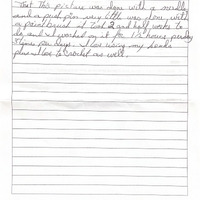 that this picture was done with a needle
and a push pin very little was done with
a paintbrush it took 2 and half weeks to
do and I worked on it for 1½ hours, per day
days I love using my hands
plus I love to Crochet as well.